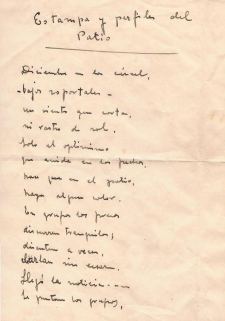 Estampa y perfiles del
Patio
Diciembre en la cárcel,
-bajos soportales-
un viento que corta,
ni rastro de sol.
Solo el optimismo
que anida en los pechos,
hace que en el patio,
haya algun color.
En grupos los presos
discurren tranquilos;
discuten a veces,
charlan sin cesar.
Llegó la noticia...
se juntan los grupos,